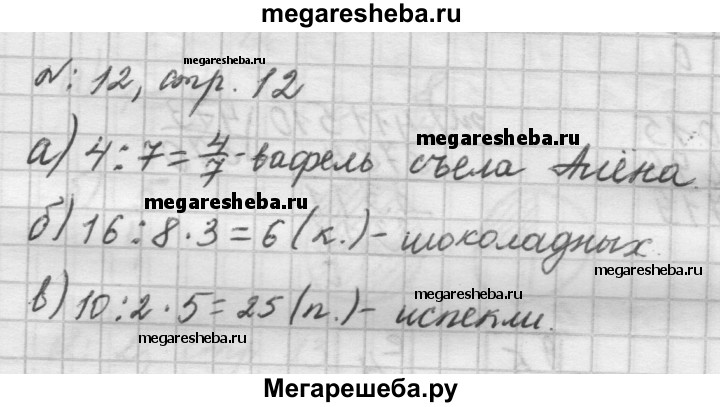 megaresheba.ru
megaresheba.ru
№: 12, стр. 12
megaresheba.ru
а) 4 : 7 = 4/7 - вафель съела Алёна.
megaresheba.ru
б) 16 : 8 · 3 = 6 (к.) - шоколадных.
megaresheba.ru
megaresheba.ru
в) 10 : 2 · 5 = 25 (п.) - испекли.
megaresheba.ru
Мегарешеба.ру